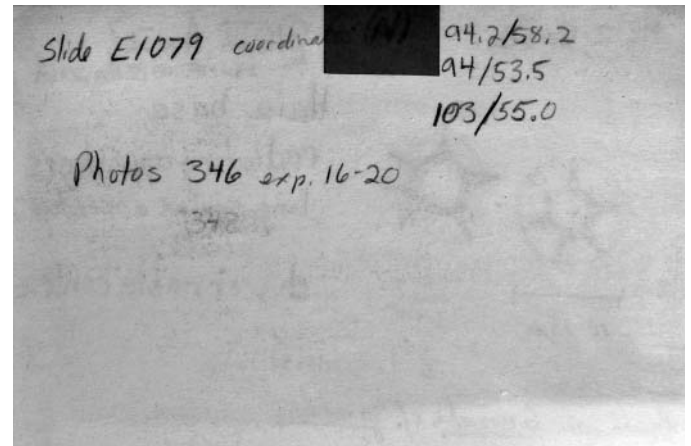 Slide E1079 coordinates (N) 94.2/58.2
94/53.5
103/55.0
Photos 346 exp. 16-20
348